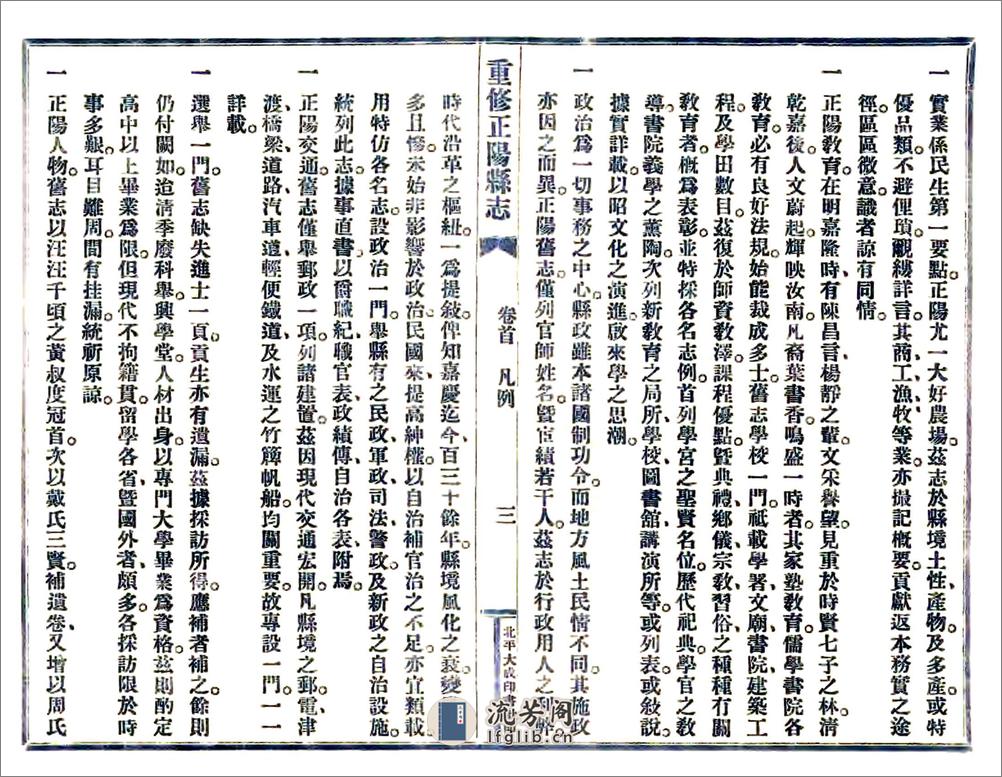 一 實業係民生第一要點。正陽尤一大好農場。茲志於縣境土性、產物。及多產或特
優品類。不避俚瑣。覼縷詳言。其商、工、漁、牧、等業。亦撮記概要。貢獻返本務實之途
徑。區區微意。識者諒有同情。
一 正陽教育。在明嘉隆時、有陳昌言、楊靜之輩。文采譽望。見重於時賢七子之林。清
乾嘉後。人文蔚起。輝映汝南。凡裔葉書香。鳴盛一時者。其家塾教育。儒學書院各
教育。必有良好法規。始能裁成多士。舊志學校一門。祗載學署文廟書院。建築工
程。及學田數目。茲復於師資教澤。課程優點。暨典禮鄉儀宗教習俗之種種有關
教育者。概為表彰。並特採各名志例。首列學宮之聖賢名位。歷代祀典。學官之教
導。書院義學之薰陶。次列新教育之局、所、學校、圖書館、講演所等。或列表。或敘說。
據實詳載。以昭文化之演進。啟來學之思潮。
一 政治為一切事務之中心。縣政雖本諸國制功令。而地方風土民情不同。其施政
亦因之而異。正陽舊志。僅列官師姓名。暨宦績若干人。茲志於行政用人之
重修正陽縣志
卷首 凡例
三
北平大成印書
時代沿革之樞紐。一為提敘。俾知嘉慶迄今。百三十餘年。縣境風化之衰、變、
多且慘。未始非影響於政治。民國來、提高紳權。以自治補官治之不足。亦宜類載。
用特仿各名志。設政治一門。舉縣有之民政、軍政、司法、警政、及新政之自治設施。
統列此志。據事直書。以爵職紀職官表。政績傳、自治各表附焉。
一 正陽交通。舊志僅舉郵政一項。列諸建置。茲因現代交通宏開。凡縣境之郵、電、津
渡、橋梁、道路、汽車道、輕便鐵道、及水運之竹簰帆船。均關重要。故專設一門。一一
詳載。
一 選舉一門。舊志缺失進士一頁。貢生亦有遺漏。茲據採訪所得。應補者補之。餘則
仍付闕如。迨清季廢科舉。興學堂。人材出身。以專門大學畢業為資格。茲則酌定
高中以上畢業為限。但現代不拘籍貫。留學各省暨國外者、頗多。各採訪限於時
事多艱。耳目難周。間有挂漏。統祈原諒。
一 正陽人物。舊志以汪汪千頃之黃叔度冠首。次以戴氏三賢。補遺卷、又增以周氏
流芳閣
lfglib.cn